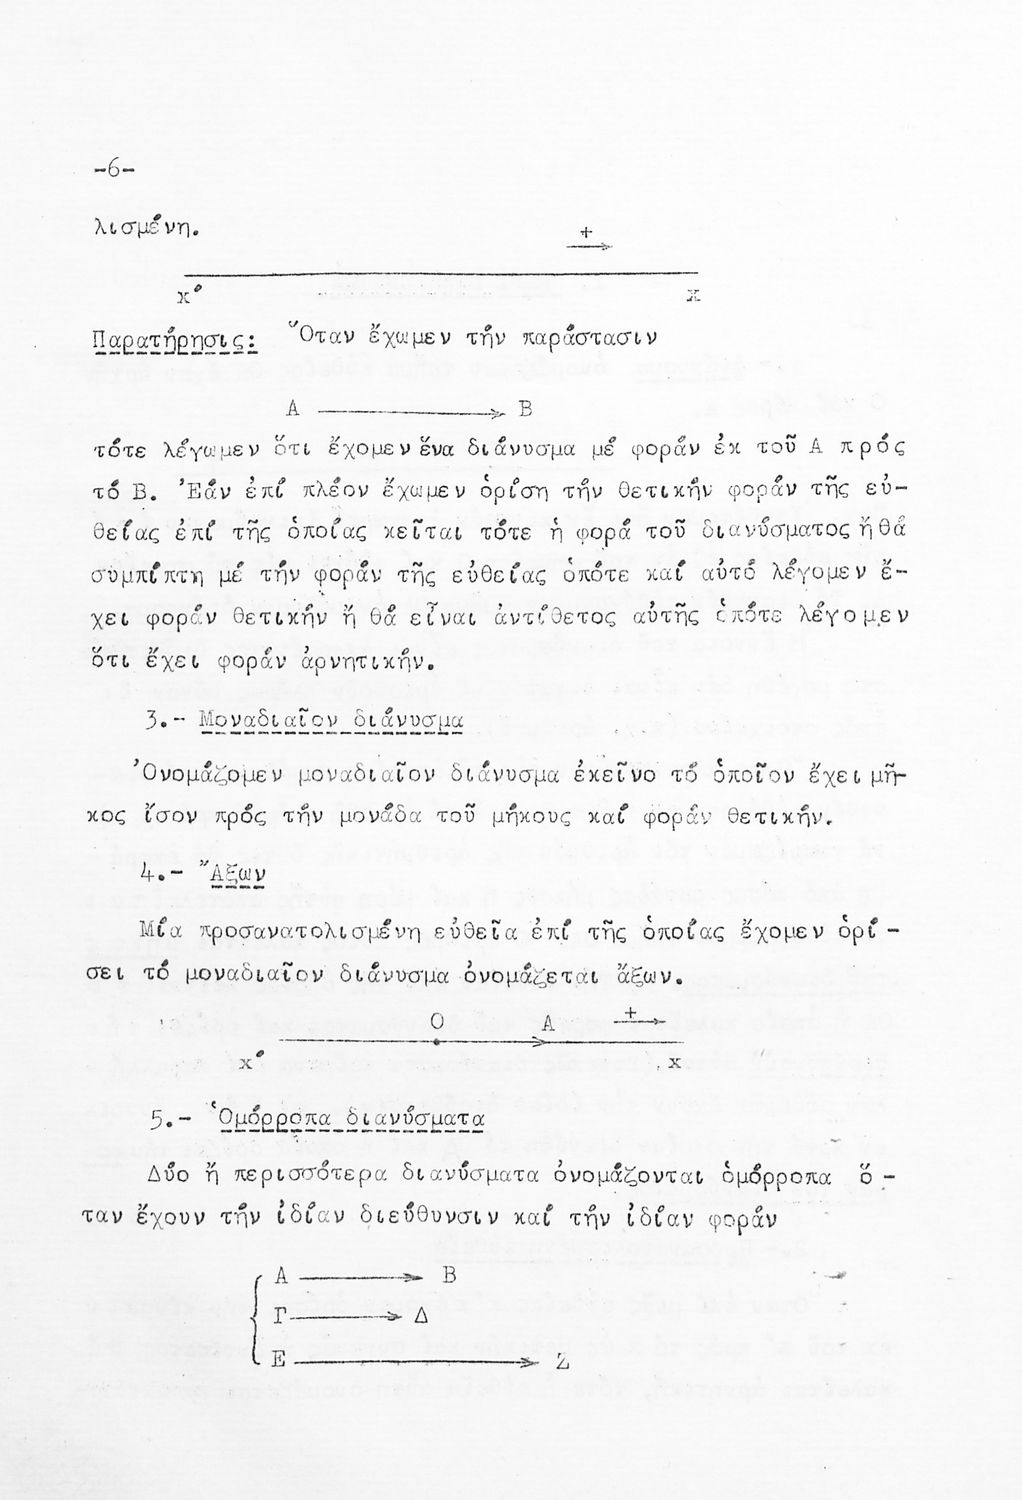 -6-
λισμένη.
+
x' x
Παρατήρησις: Ὅταν ἔχωμεν τήν παράστασιν
Α Β
τότε λέγωμεν ὅτι ἔχομεν ἕνα διάνυσμα μέ φοράν ἐκ τοῦ Α πρός
τό Β. Ἐάν ἐπί πλέον ἔχωμεν ὁρίση τήν θετικήν φοράν τῆς εὐ-
θείας ἐπί τῆς ὁποίας κεῖται τότε ἡ φορά τοῦ διανύσματος ἤ θά
συμπίπτη μέ τήν φοράν τῆς εὐθείας ὁπότε καί αὐτό λέγομεν ἔ-
χει φοράν θετικήν ἤ θά εἶναι ἀντίθετος αὐτῆς ὁπότε λέγομεν
ὅτι ἔχει φοράν ἀρνητικήν.
3.- Μοναδιαῖον διάνυσμα
Ὀνομάζομεν μοναδιαῖον διάνυσμα ἐκεῖνο τό ὁποῖον ἔχει μῆ-
κος ἴσον πρός τήν μονάδα τοῦ μήκους καί φοράν θετικήν.
4.- Ἄξων
Μία προσανατολισμένη εὐθεῖα ἐπί τῆς ὁποίας ἔχομεν ὁρί-
σει τό μοναδιαῖον διάνυσμα ὀνομάζεται ἄξων.
Ο Α +
x' x
5.- Ὁμόρροπα διανύσματα
Δύο ἤ περισσότερα διανύσματα ὀνομάζονται ὁμόρροπα ὅ-
ταν ἔχουν τήν ἰδίαν διεύθυνσιν καί τήν ἰδίαν φοράν
Α Β
Γ Δ
Ε Ζ